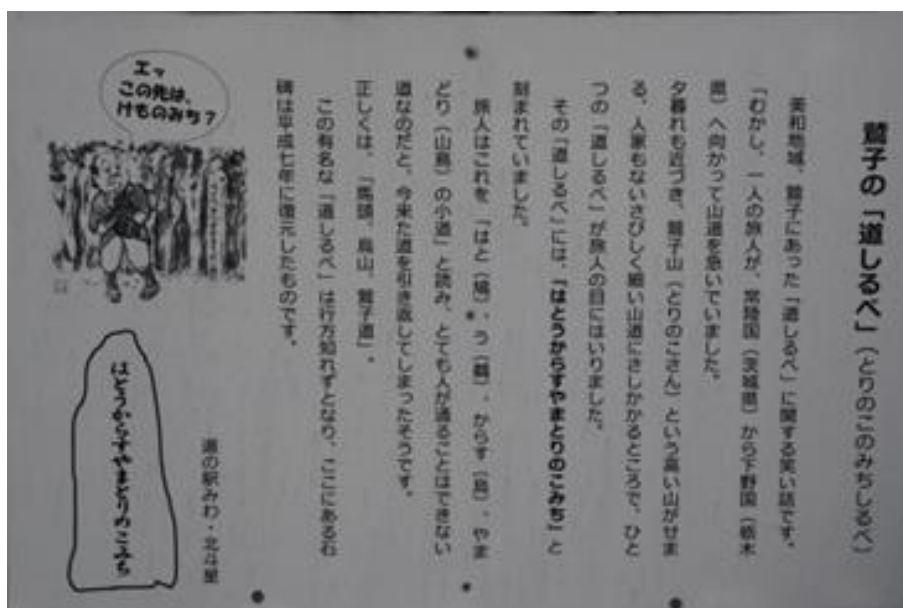 鷲子の「道しるべ」（とりのこのみちしるべ）
美和地域、鷲子にあった「道しるべ」に関する笑い話です。
「むかし、一人の旅人が、常陸国（茨城県）から下野国（栃木
県）へ向かって山道を急いでいました。
夕暮れも近づき、鷲子山（とりのこさん）という高い山がせま
る、人家もないさびしく細い山道にさしかかるところで、ひと
つの「道しるべ」が旅人の目にはいりました。
その「道しるべ」には、「はとうからすやまとりのこみち」と
刻まれていました。
旅人はこれを、「はと（鳩）、う（鵜）、からす（烏）、やま
どり（山鳥）の小道」と読み、とても人が通ることはできない
道なのだと、今来た道を引き返してしまったそうです。
正しくは、「馬頭、烏山、鷲子道」。
この有名な「道しるべ」は行方知れずとなり、ここにある石
碑は平成七年に復元したものです。
道の駅みわ・北斗星
エッ
この先は、
けものみち？
はとうからすやまとりのこみち